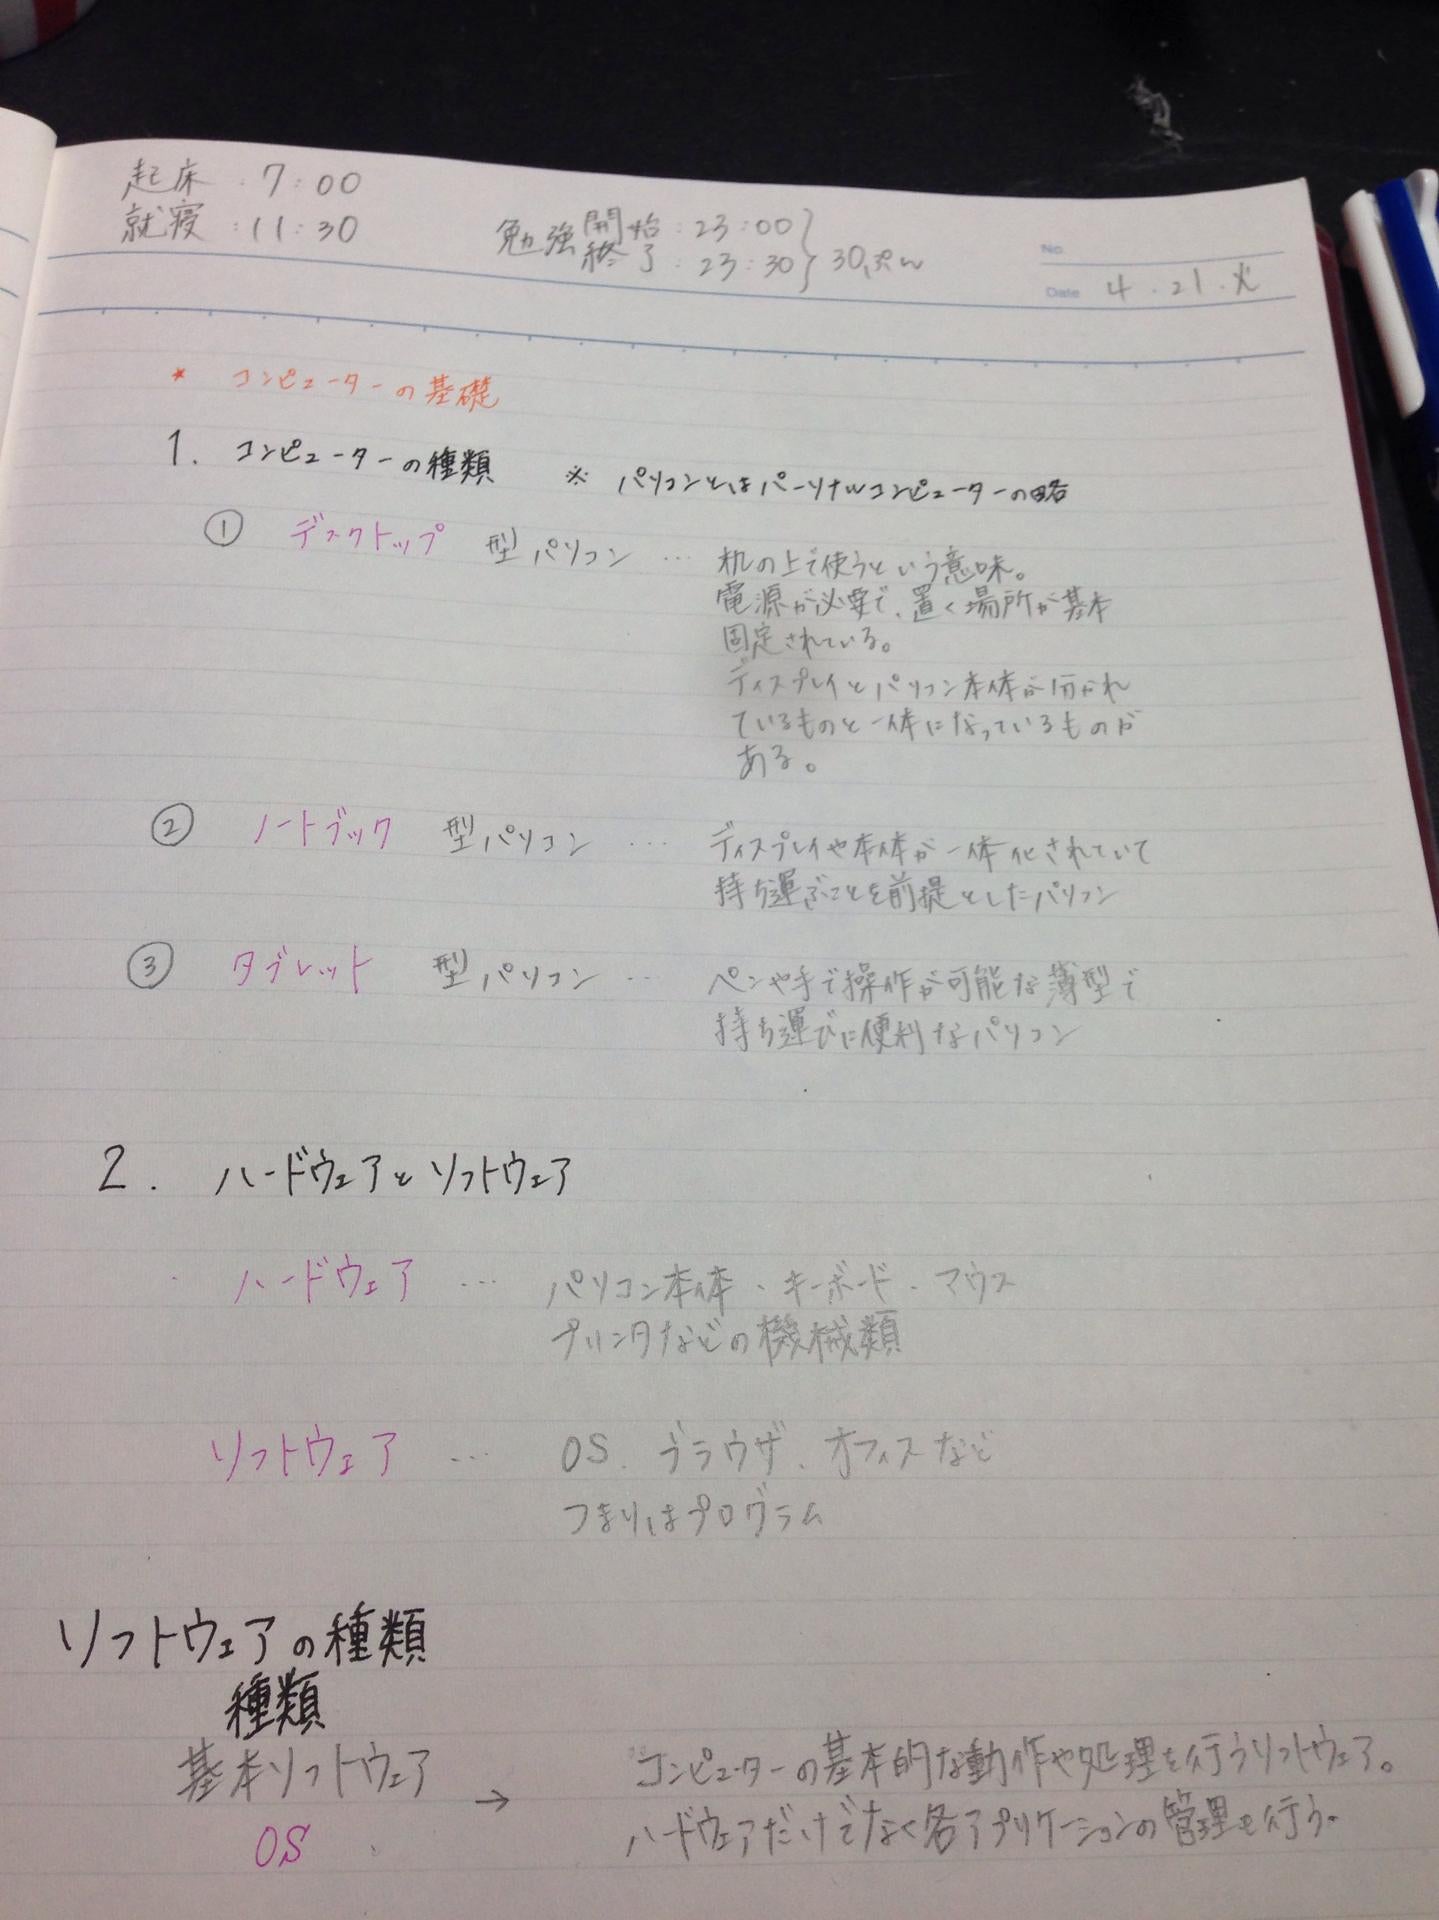 起床：7：00
就寝：11：30
勉強開始：23：00
終了：23：30 } 30ぷん
No.
Date 4．21．火
* コンピューターの基礎
1. コンピューターの種類 ※ パソコンとはパーソナルコンピューターの略
① デスクトップ 型パソコン … 机の上で使うという意味。
電源が必要で、置く場所が基本
固定されている。
ディスプレイとパソコン本体が分かれ
ているものと一体になっているものが
ある。
② ノートブック 型パソコン … ディスプレイや本体が一体化されていて
持ち運ぶことを前提としたパソコン
③ タブレット 型パソコン … ペンや手で操作が可能な薄型で
持ち運びに便利なパソコン
2. ハードウェアとソフトウェア
ハードウェア … パソコン本体、キーボード、マウス
プリンタなどの機械類
ソフトウェア … OS、ブラウザ、オフィスなど
つまりはプログラム
ソフトウェアの種類
種類
基本ソフトウェア → コンピューターの基本的な動作や処理を行うソフトウェア。
OS ハードウェアだけでなく各アプリケーションの管理も行う。